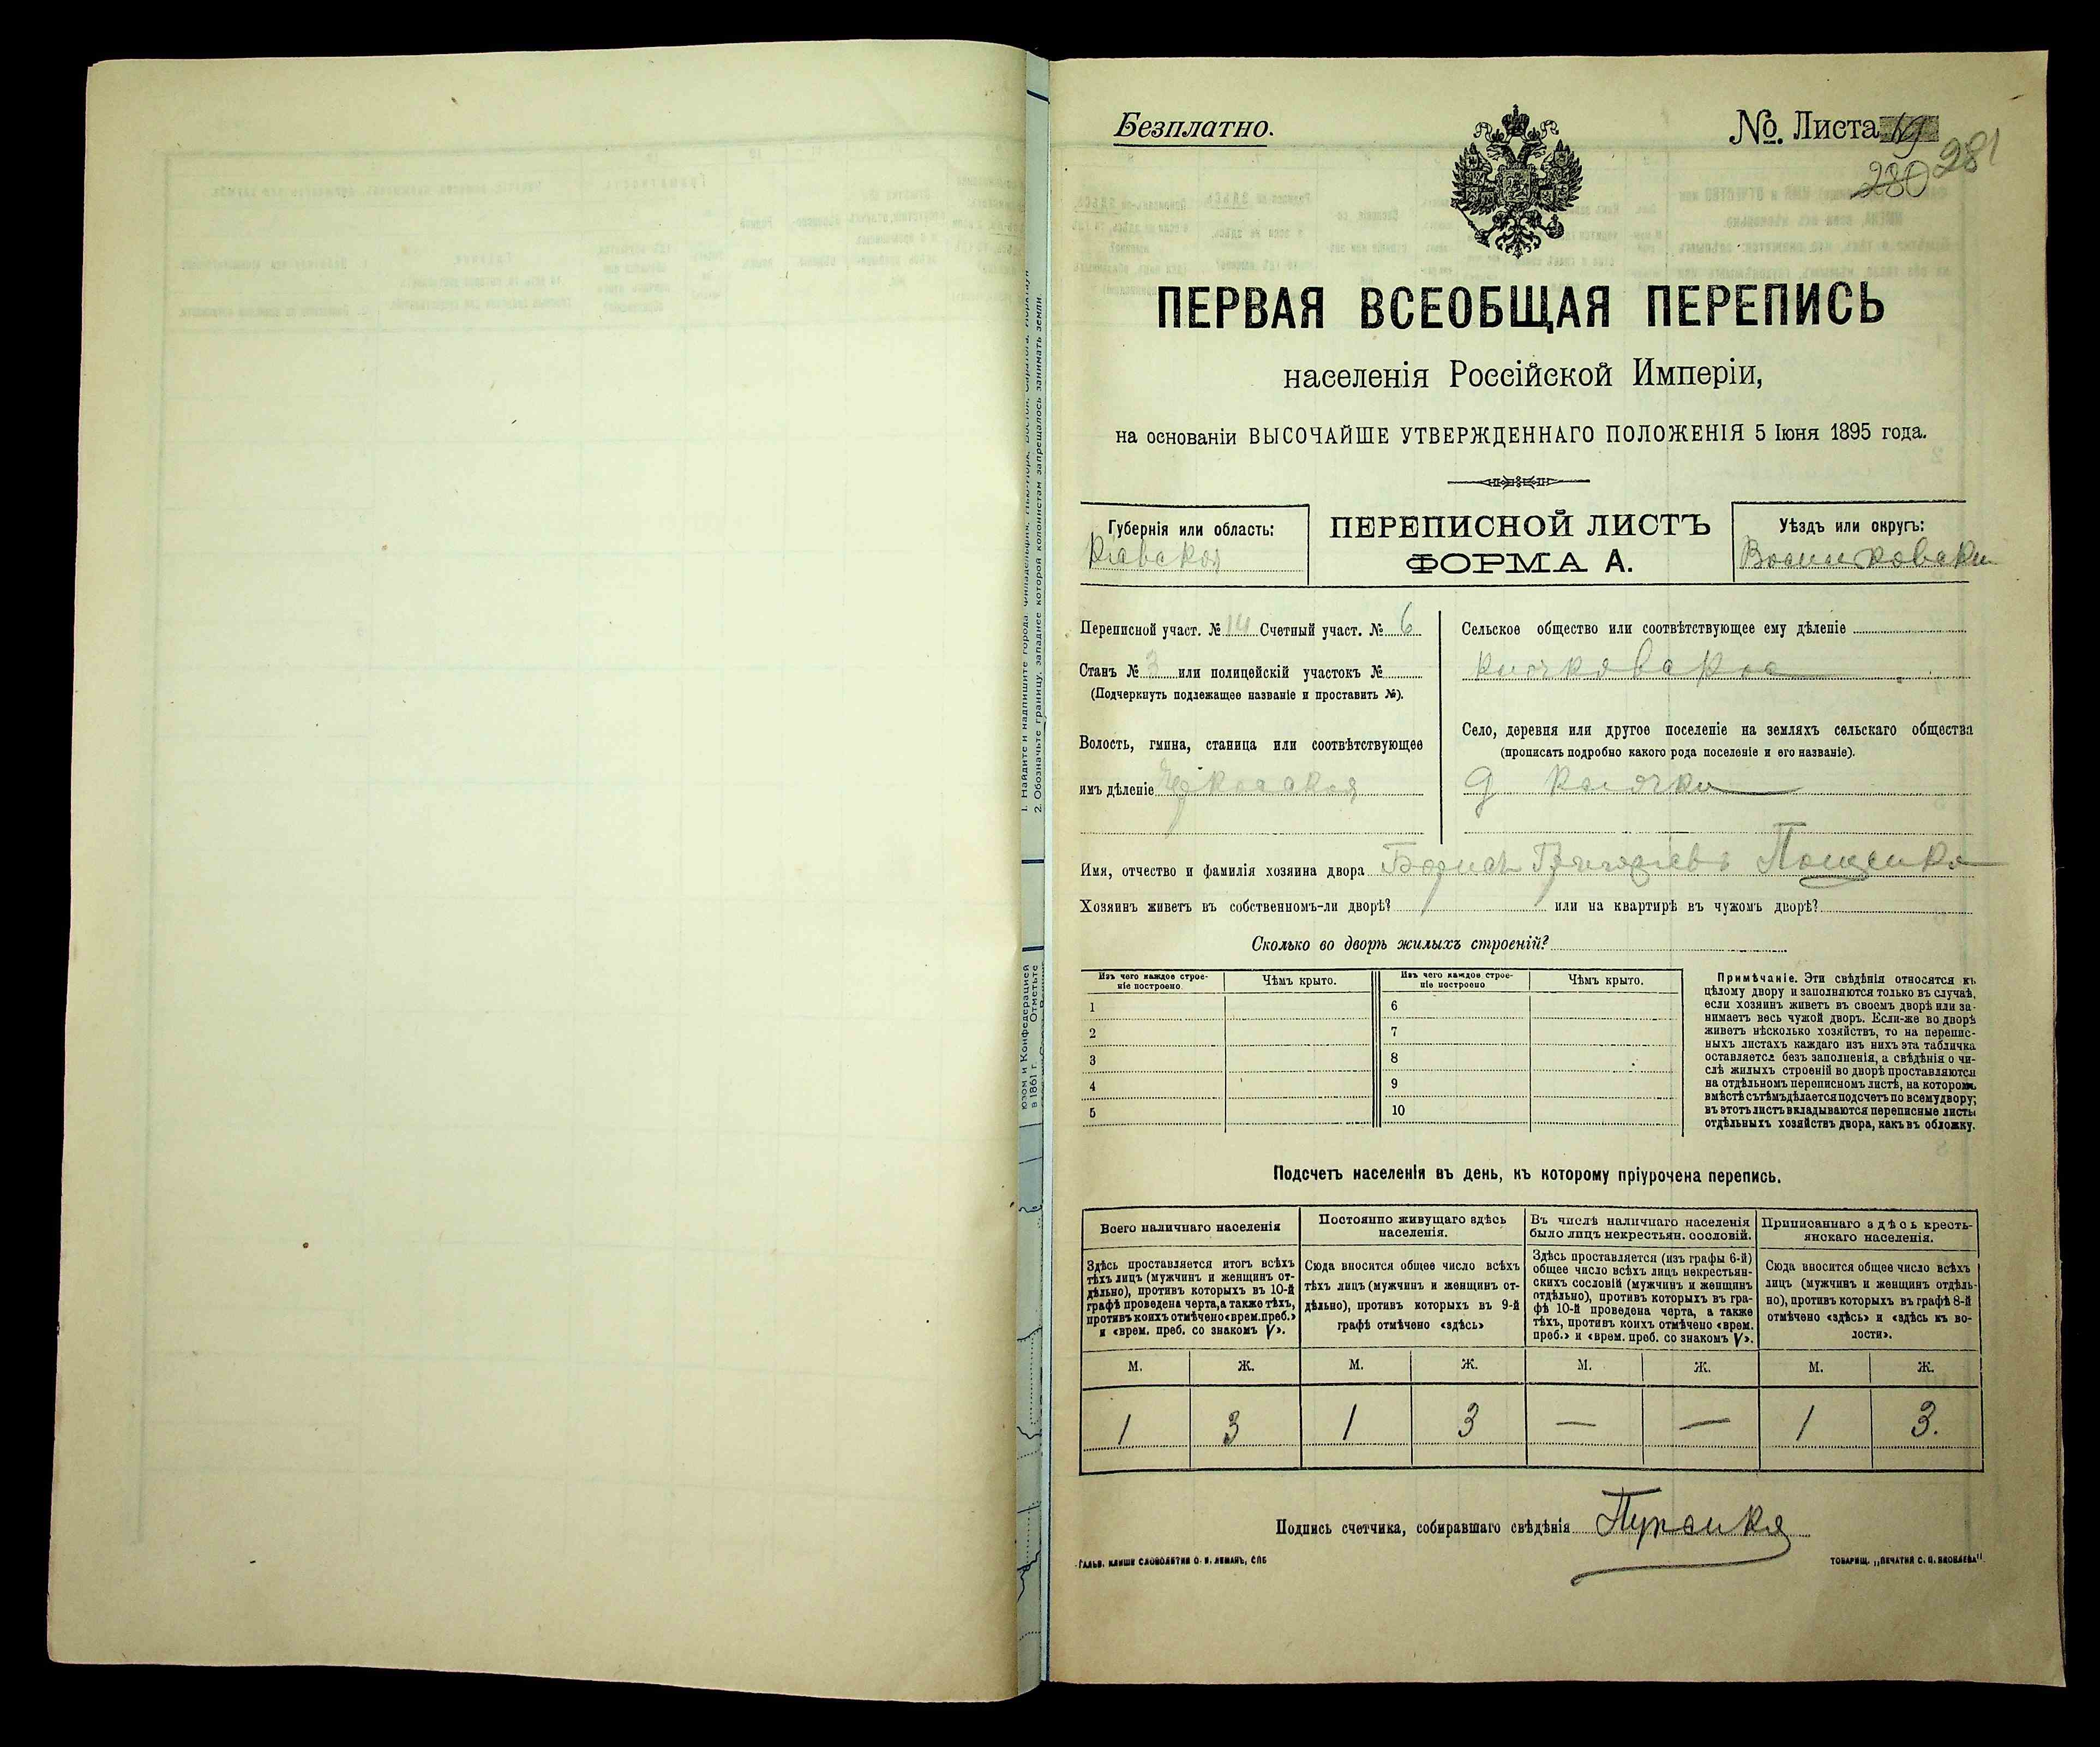 Безплатно.
№ Листа 19
280 281
ПЕРВАЯ ВСЕОБЩАЯ ПЕРЕПИСЬ
населенія Россійской Имперіи,
на основаніи ВЫСОЧАЙШЕ УТВЕРЖДЕННАГО ПОЛОЖЕНІЯ 5 Іюня 1895 года.
Губернія или область:
Кіевская
ПЕРЕПИСНОЙ ЛИСТЪ
ФОРМА А.
Уѣздъ или округъ:
Переписной участ. № 14 Счетный участ. № 6
Станъ № 3 или полицейскій участокъ №
(Подчеркнуть подлежащее названіе и проставить №).
Волость, гмина, станица или соотвѣтствующее
имъ дѣленіе
Сельское общество или соотвѣтствующее ему дѣленіе
Село, деревня или другое поселеніе на земляхъ сельскаго общества
(прописать подробно какого рода поселеніе и его названіе).
д
Имя, отчество и фамилія хозяина двора Борисъ Григоріевъ Пащенко
Хозяинъ живетъ въ собственномъ-ли дворѣ? или на квартирѣ въ чужомъ дворѣ?
Сколько во дворѣ жилыхъ строеній?
Изъ чего каждое строе-
ніе построено
Чѣмъ крыто.
Изъ чего каждое строе-
ніе построено
Чѣмъ крыто.
1
2
3
4
5
6
7
8
9
10
Примѣчаніе. Эти свѣдѣнія относятся къ
цѣлому двору и заполняются только въ случаѣ,
если хозяинъ живетъ въ своемъ дворѣ или за-
нимаетъ весь чужой дворъ. Если-же во дворѣ
живетъ нѣсколько хозяйствъ, то на перепис-
ныхъ листахъ каждаго изъ нихъ эта табличка
оставляется безъ заполненія, а свѣдѣнія о чи-
слѣ жилыхъ строеній во дворѣ проставляются
на отдѣльномъ переписномъ листѣ, на которомъ
вмѣстѣ съ тѣмъ дѣлается подсчетъ по всему двору;
въ этотъ листъ вкладываются переписные листы
отдѣльныхъ хозяйствъ двора, какъ въ обложку.
Подсчетъ населенія въ день, къ которому пріурочена перепись.
Всего наличнаго населенія
Здѣсь проставляется итогъ всѣхъ
тѣхъ лицъ (мужчинъ и женщинъ от-
дѣльно), противъ которыхъ въ 10-й
графѣ проведена черта, а также тѣхъ,
противъ коихъ отмѣчено «врем. преб.»
и «врем. преб. со знакомъ V».
Постоянно живущаго здѣсь
населенія.
Сюда вносится общее число всѣхъ
тѣхъ лицъ (мужчинъ и женщинъ от-
дѣльно), противъ которыхъ въ 9-й
графѣ отмѣчено «здѣсь»
Въ числѣ наличнаго населенія
было лицъ некрестьян. сословій.
Здѣсь проставляется (изъ графы 6-й)
общее число всѣхъ лицъ некрестьян-
скихъ сословій (мужчинъ и женщинъ
отдѣльно), противъ которыхъ въ гра-
фѣ 10-й проведена черта, а также
тѣхъ, противъ коихъ отмѣчено «врем.
преб.» и «врем. преб. со знакомъ V».
Приписаннаго здѣсь кресть-
янскаго населенія.
Сюда вносится общее число всѣхъ
лицъ (мужчинъ и женщинъ отдѣль-
но), противъ которыхъ въ графѣ 8-й
отмѣчено «здѣсь» и «здѣсь къ во-
лости».
М. Ж. М. Ж. М. Ж. М. Ж.
1 3 1 3 — — 1 3.
Подпись счетчика, собиравшаго свѣдѣнія
ГАЛЬВ. КЛИШЕ СЛОВОЛИТНИ О. И. ЛЕМАНЪ, СПБ
ТОВАРИЩ. „ПЕЧАТНЯ С. П. ЯКОВЛЕВА".
1. Найдите и надпишите города Филадельфия, Нью-Йорк, Бостон, Саратога, Йорктаун
2. Обозначьте границу, западнее которой колонистам запрещалось занимать земли.
юзом и Конфедерацией
в 1861 г. Отметьте